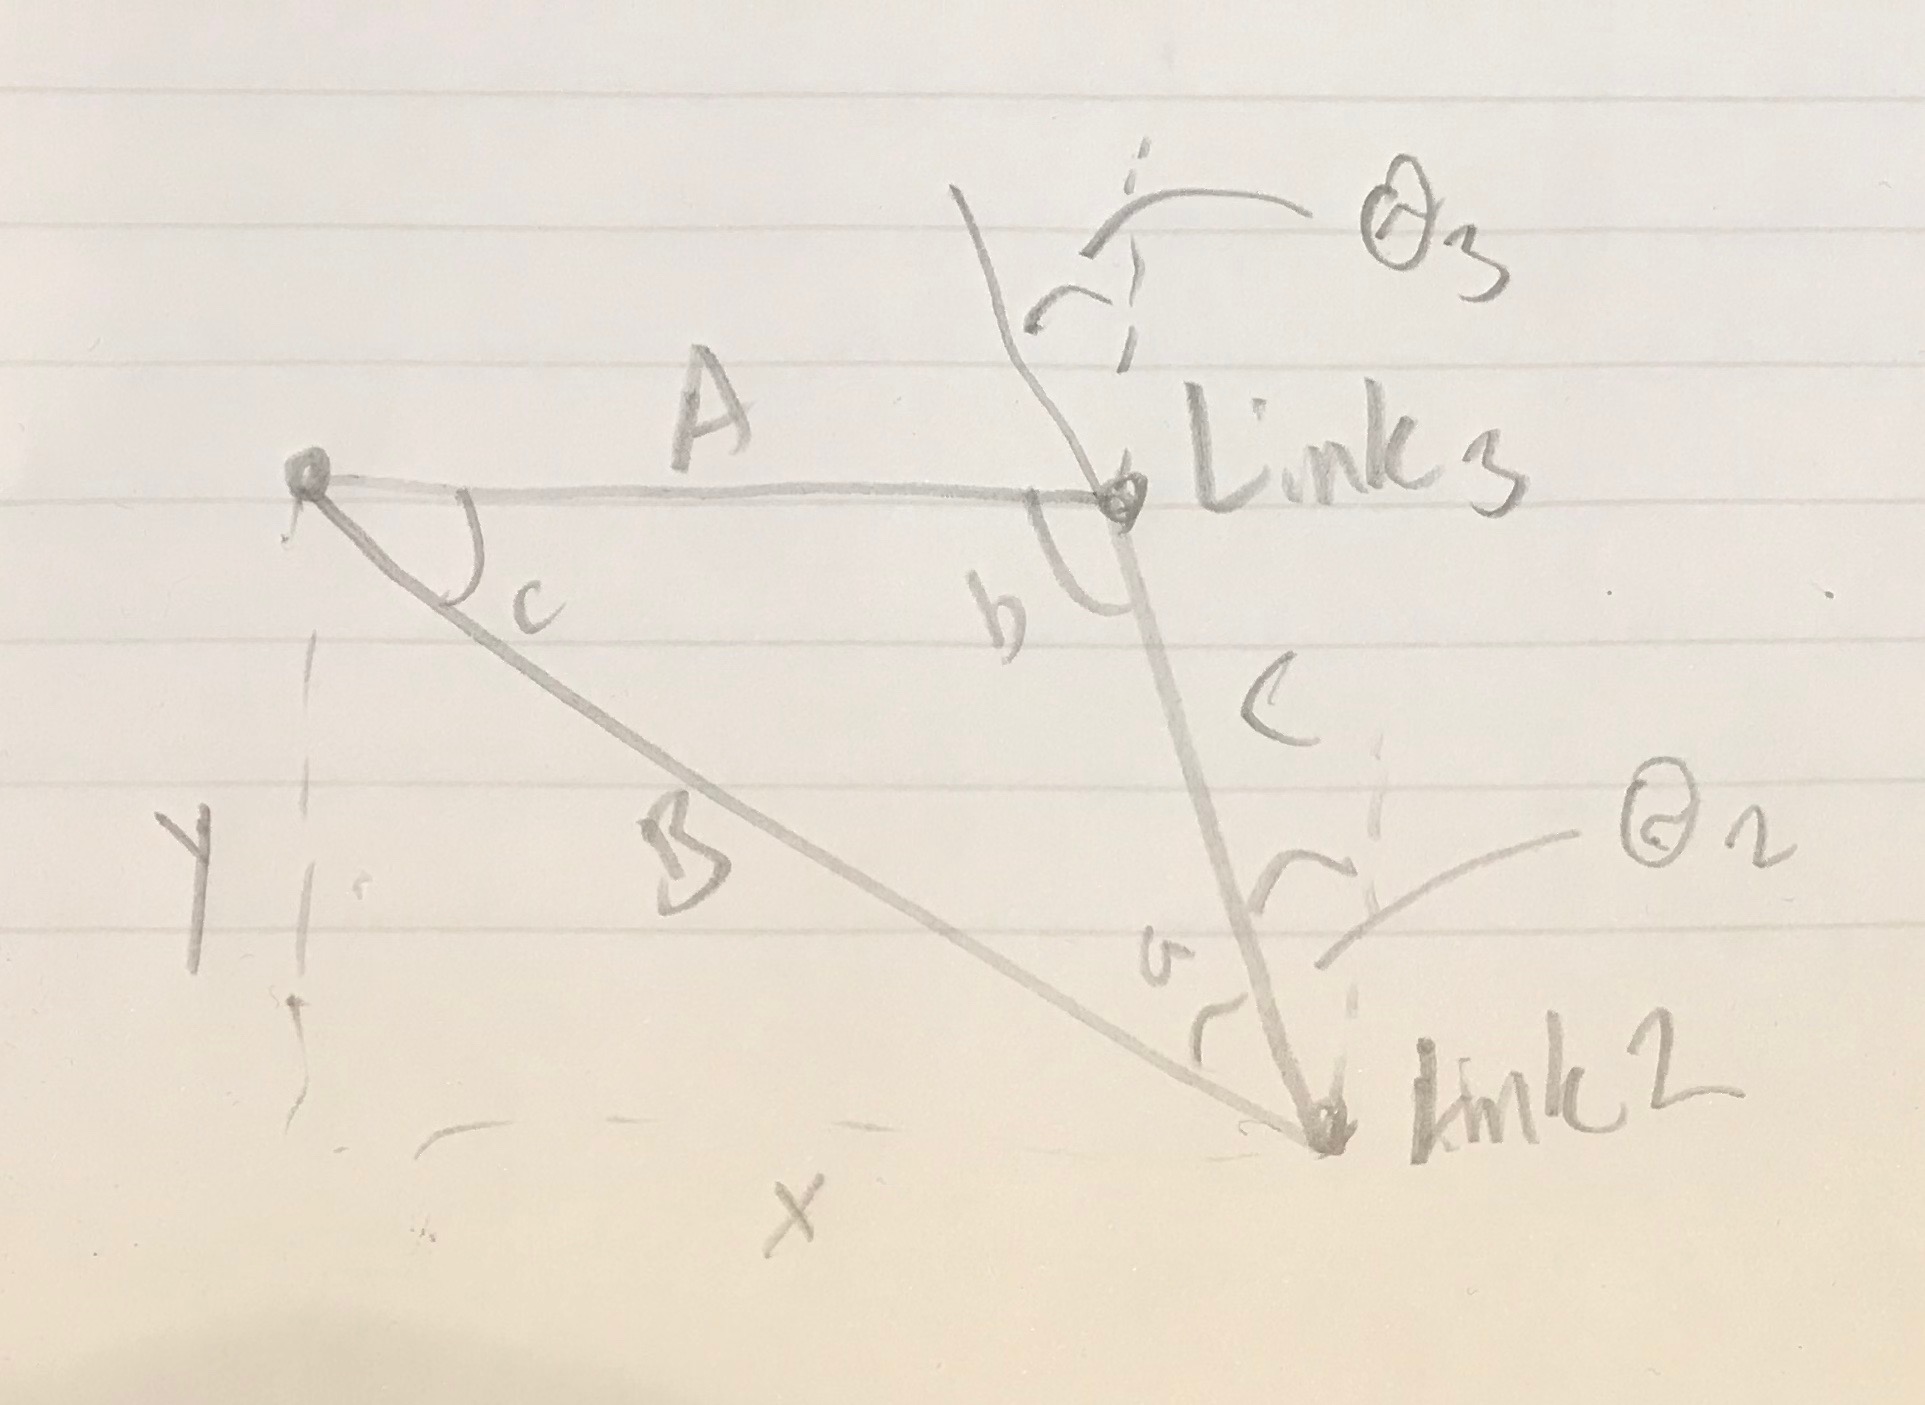 Θ3
A
Link3
c
b
C
Y
B
Θ2
a
Link2
X